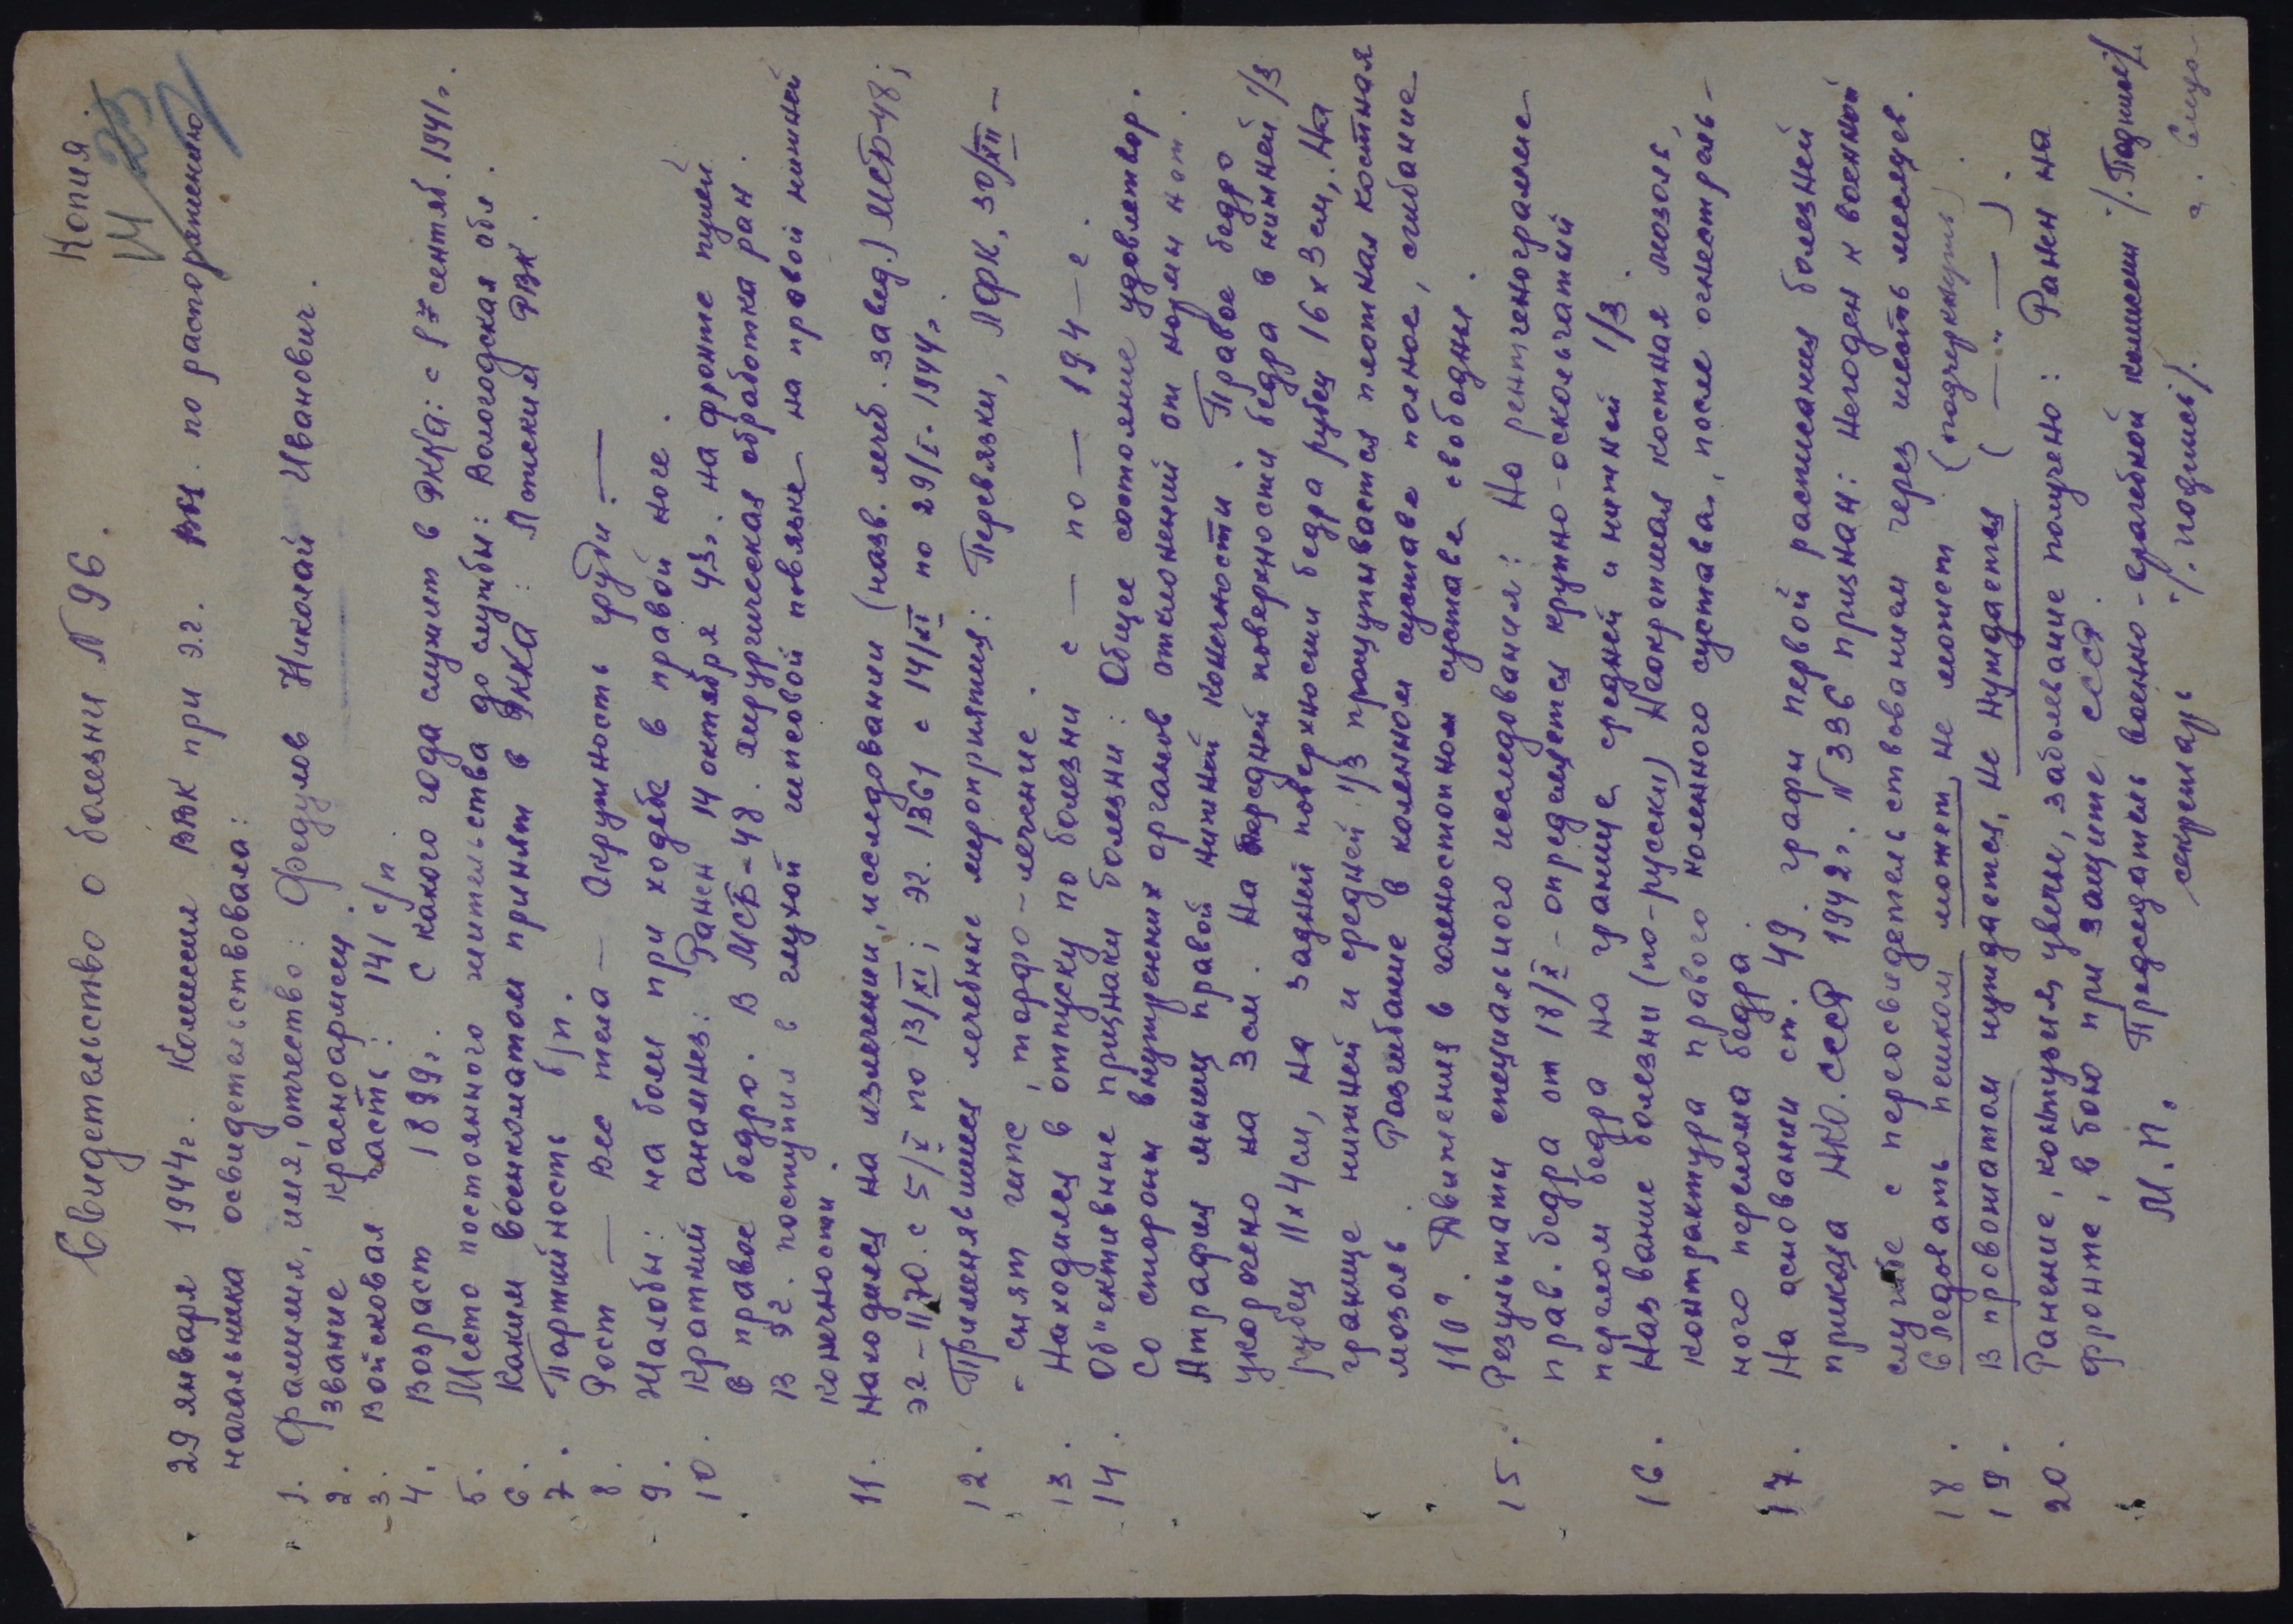 Копия.
Свидетельство о болезни № 96.
29 января 1944г. Комиссия ВВК при Э.Г. по распоряжению
начальника освидетельствовала:
1. Фамилия, имя, отчество: Федулов Николай Иванович.
2. Звание красноармеец.
3. Войсковая часть: 141 с/п.
4. Возраст 1899г. С какого года служит в РККА: с сентяб. 1941г.
5. Место постоянного жительства до службы: Вологодская обл.
6. Каким военкоматом принят в РККА: РВК.
7. Партийность б/п.
8. Рост — Вес тела — Окружность груди: —
9. Жалобы: на боли при ходьбе в правой ноге.
10. Краткий анамнез: Ранен 14 октября 43г. на фронте пулей
в правое бедро. В МСБ-48. хирургическая обработка ран.
В ЭГ. поступил в глухой гипсовой повязке на правой нижней
конечности.
11. Находился на излечении, исследовании (назв. лечеб. завед.) МСБ-48;
ЭГ-1170. с 5/X по 13/XI; ЭГ. 1361 с 14/XI по 29/I. 1944г.
12. Применявшиеся лечебные мероприятия: Перевязки, ЛФК, 30/XII —
- снят гипс, торфо-лечение.
13. Находился в отпуску по болезни с — по — 194 — г.
14. Об"ективные признаки болезни: Общее состояние удовлетвор.
Со стороны внутренних органов отклонений от нормы нет.
Атрофия мышц правой нижней конечности. Правое бедро
укорочено на 3 см. На передней поверхности бедра в нижней 1/3
рубец 11х4 см, на задней поверхности бедра рубец 16 х 3 см, На
границе нижней и средней 1/3 прощупывается плотная костная
мозоль. Разгибание в коленном суставе полное, сгибание
110°. Движения в голеностопном суставе свободны.
15. Результаты специального исследования: На рентгенограмме
прав. бедра от 18/X - определяется крупно-оскольчатый
перелом бедра на границе средней и нижней 1/3.
16. Название болезни (по-русски) Неокрепшая костная мозоль,
контрактура правого коленного сустава, после огнестрель-
ного перелома бедра.
17. На основании ст. 49. графы первой расписания болезней
приказа НКО.СССР 1942г. № 336 признан: негоден к военной
службе с переосвидетельствованием через шесть месяцев.
18. Следовать пешком может, не может (подчеркнуть).
19. В провожатом нуждается, не нуждается ( — " — ).
20. Ранение, контузия, увечье, заболевание получено: Ранен на
фронте, в бою при защите СССР.
М.П. Председатель военно-врачебной комиссии /.Подпись/.
секретарь /.подпись/.